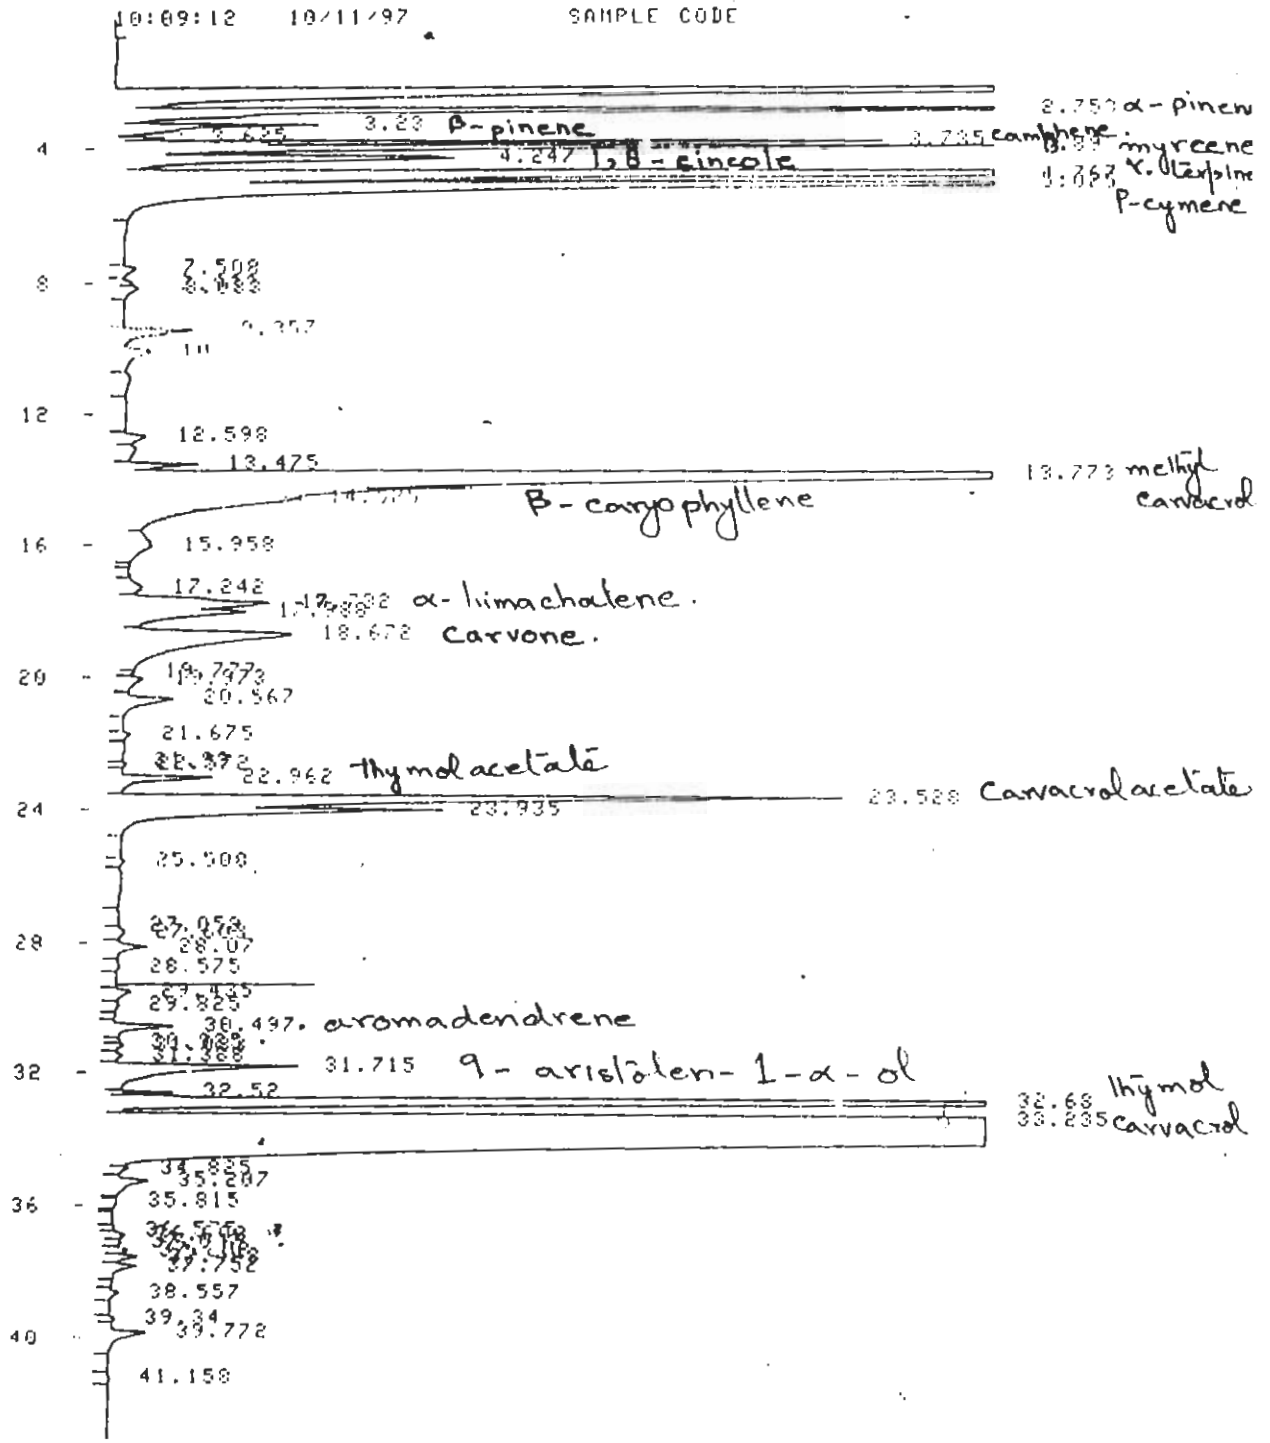 10:09:12 10/11/97 SAMPLE CODE
2.750 α-pinen
3.23 β-pinene
3.625
3.735 camphene.
myrcene
4 -
4.247 1,8-cincole
4.767 γ.terpine
5.025
P-cymene
7.508
8 -
8.083
9.357
10
12 -
12.598
13.475
13.773 methyl
carvacrol
14.525 β-caryophyllene
16 -
15.958
17.242
17.732 α-himachalene.
17.988
18.672 carvone.
19.777
20 -
19.973
20.567
21.675
22.372
22.962 thymol acetate
23.528 Carvacrol acetate
24 -
23.935
25.508
27.053
28 -
28.07
28.575
29.435
29.825
30.497. aromadendrene
31.368
31.715 9-aristolen-1-α-ol
32 -
32.52
32.68 thymol
33.235 carvacrol
34.825
35.207
36 -
35.815
37.752
38.557
39.34
40 -
39.772
41.158